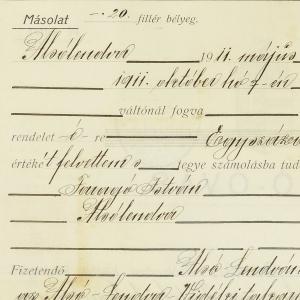 Másolat -.20. fillér bélyeg.
Alsólendva 1911 május
1911. október hó 7-én
váltónál fogva
rendelet -é- re Egyszáz
érték t felvettem s tegye számolásba tud
István
Alsólendva
Fizetendő Alsó-Lendván
az Alsó-Lendva-Vidéki takarék